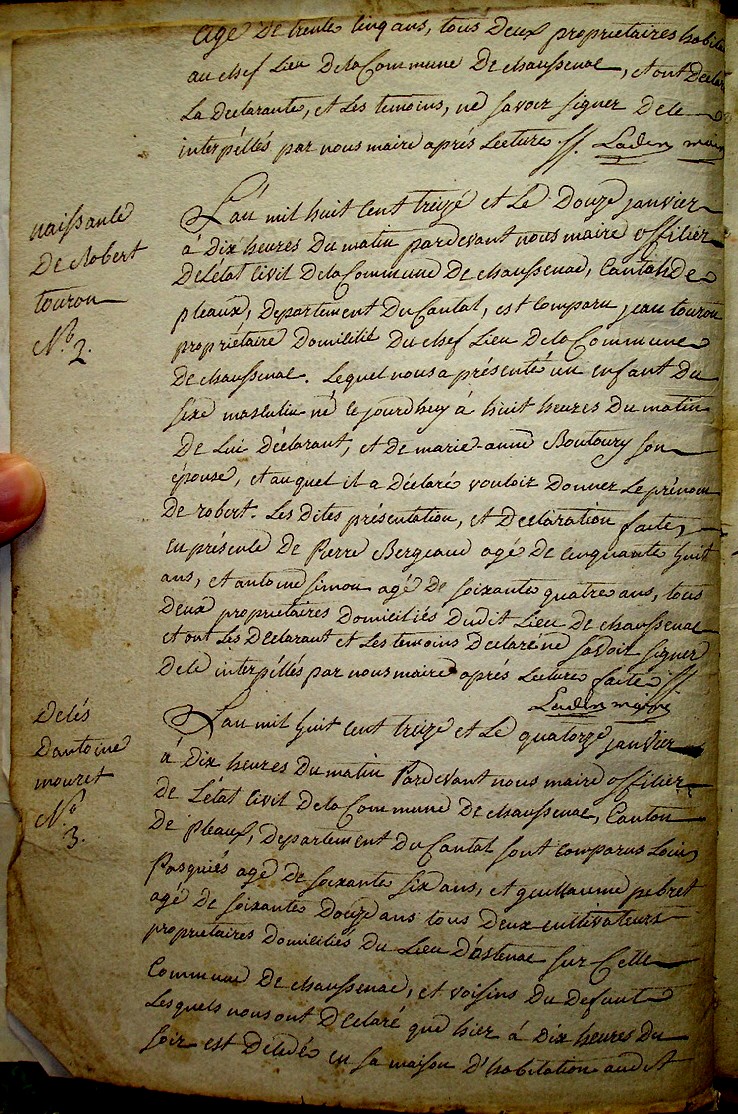 agé de trente cinq ans, tous deux proprietaires habita
au chef Lieu dela Commune de chaussenac, et ont déclaré
La declarante, et Les temoins, ne savoir signer dele
interpéllés par nous maire aprés Lecture //. Laden maire
naissance
de Robert
touron
N.º 2.
L'an mil huit cent treize et Le douze janvier
à dix heures du matin pardevant nous maire officier
de L'état civil dela Commune de chaussenac, Canton de
pleaux, departement du Cantal, est comparu jean touron
propriétaire domicilié du chef Lieu dela Commune
de chaussenac. Lequel nous a présenté un enfant du
sexe masculin né ce jourdhuy à huit heures du matin
de Lui déclarant, et de marie-anne Boutoury son
épouse, et auquel il a déclaré vouloir donner Le prénom
de robert. Les dites présentation, et declaration faite,
en présence de Pierre Bergeaud agé de cinquante huit
ans, et antoine simon agé de soixante quatre ans, tous
deux proprietaires domiciliés dudit Lieu de chaussenac
et ont Les declarant et Les temoins declaré ne savoir signer
dele interpéllés par nous maire aprés Lecture faite //.
Laden maire
decés
dantoine
mouret
N.º 3.
L'an mil huit cent treize et Le quatorze janvier
à dix heures du matin Pardevant nous maire officier
de L'état civil dela Commune de chaussenac, Canton
de Pleaux, departement du Cantal sont comparus Louis
Pasquiés agé de soixante six ans, et guillaume pebret
agé de soixante douze ans tous deux cultivateurs
proprietaires domiciliés du Lieu d'ostenac sur Cette
Commune de chaussenac, et voisins du defunt
Lesquels nous ont déclaré que hier à dix heures du
soir est decédé en sa maison d'habitation audit